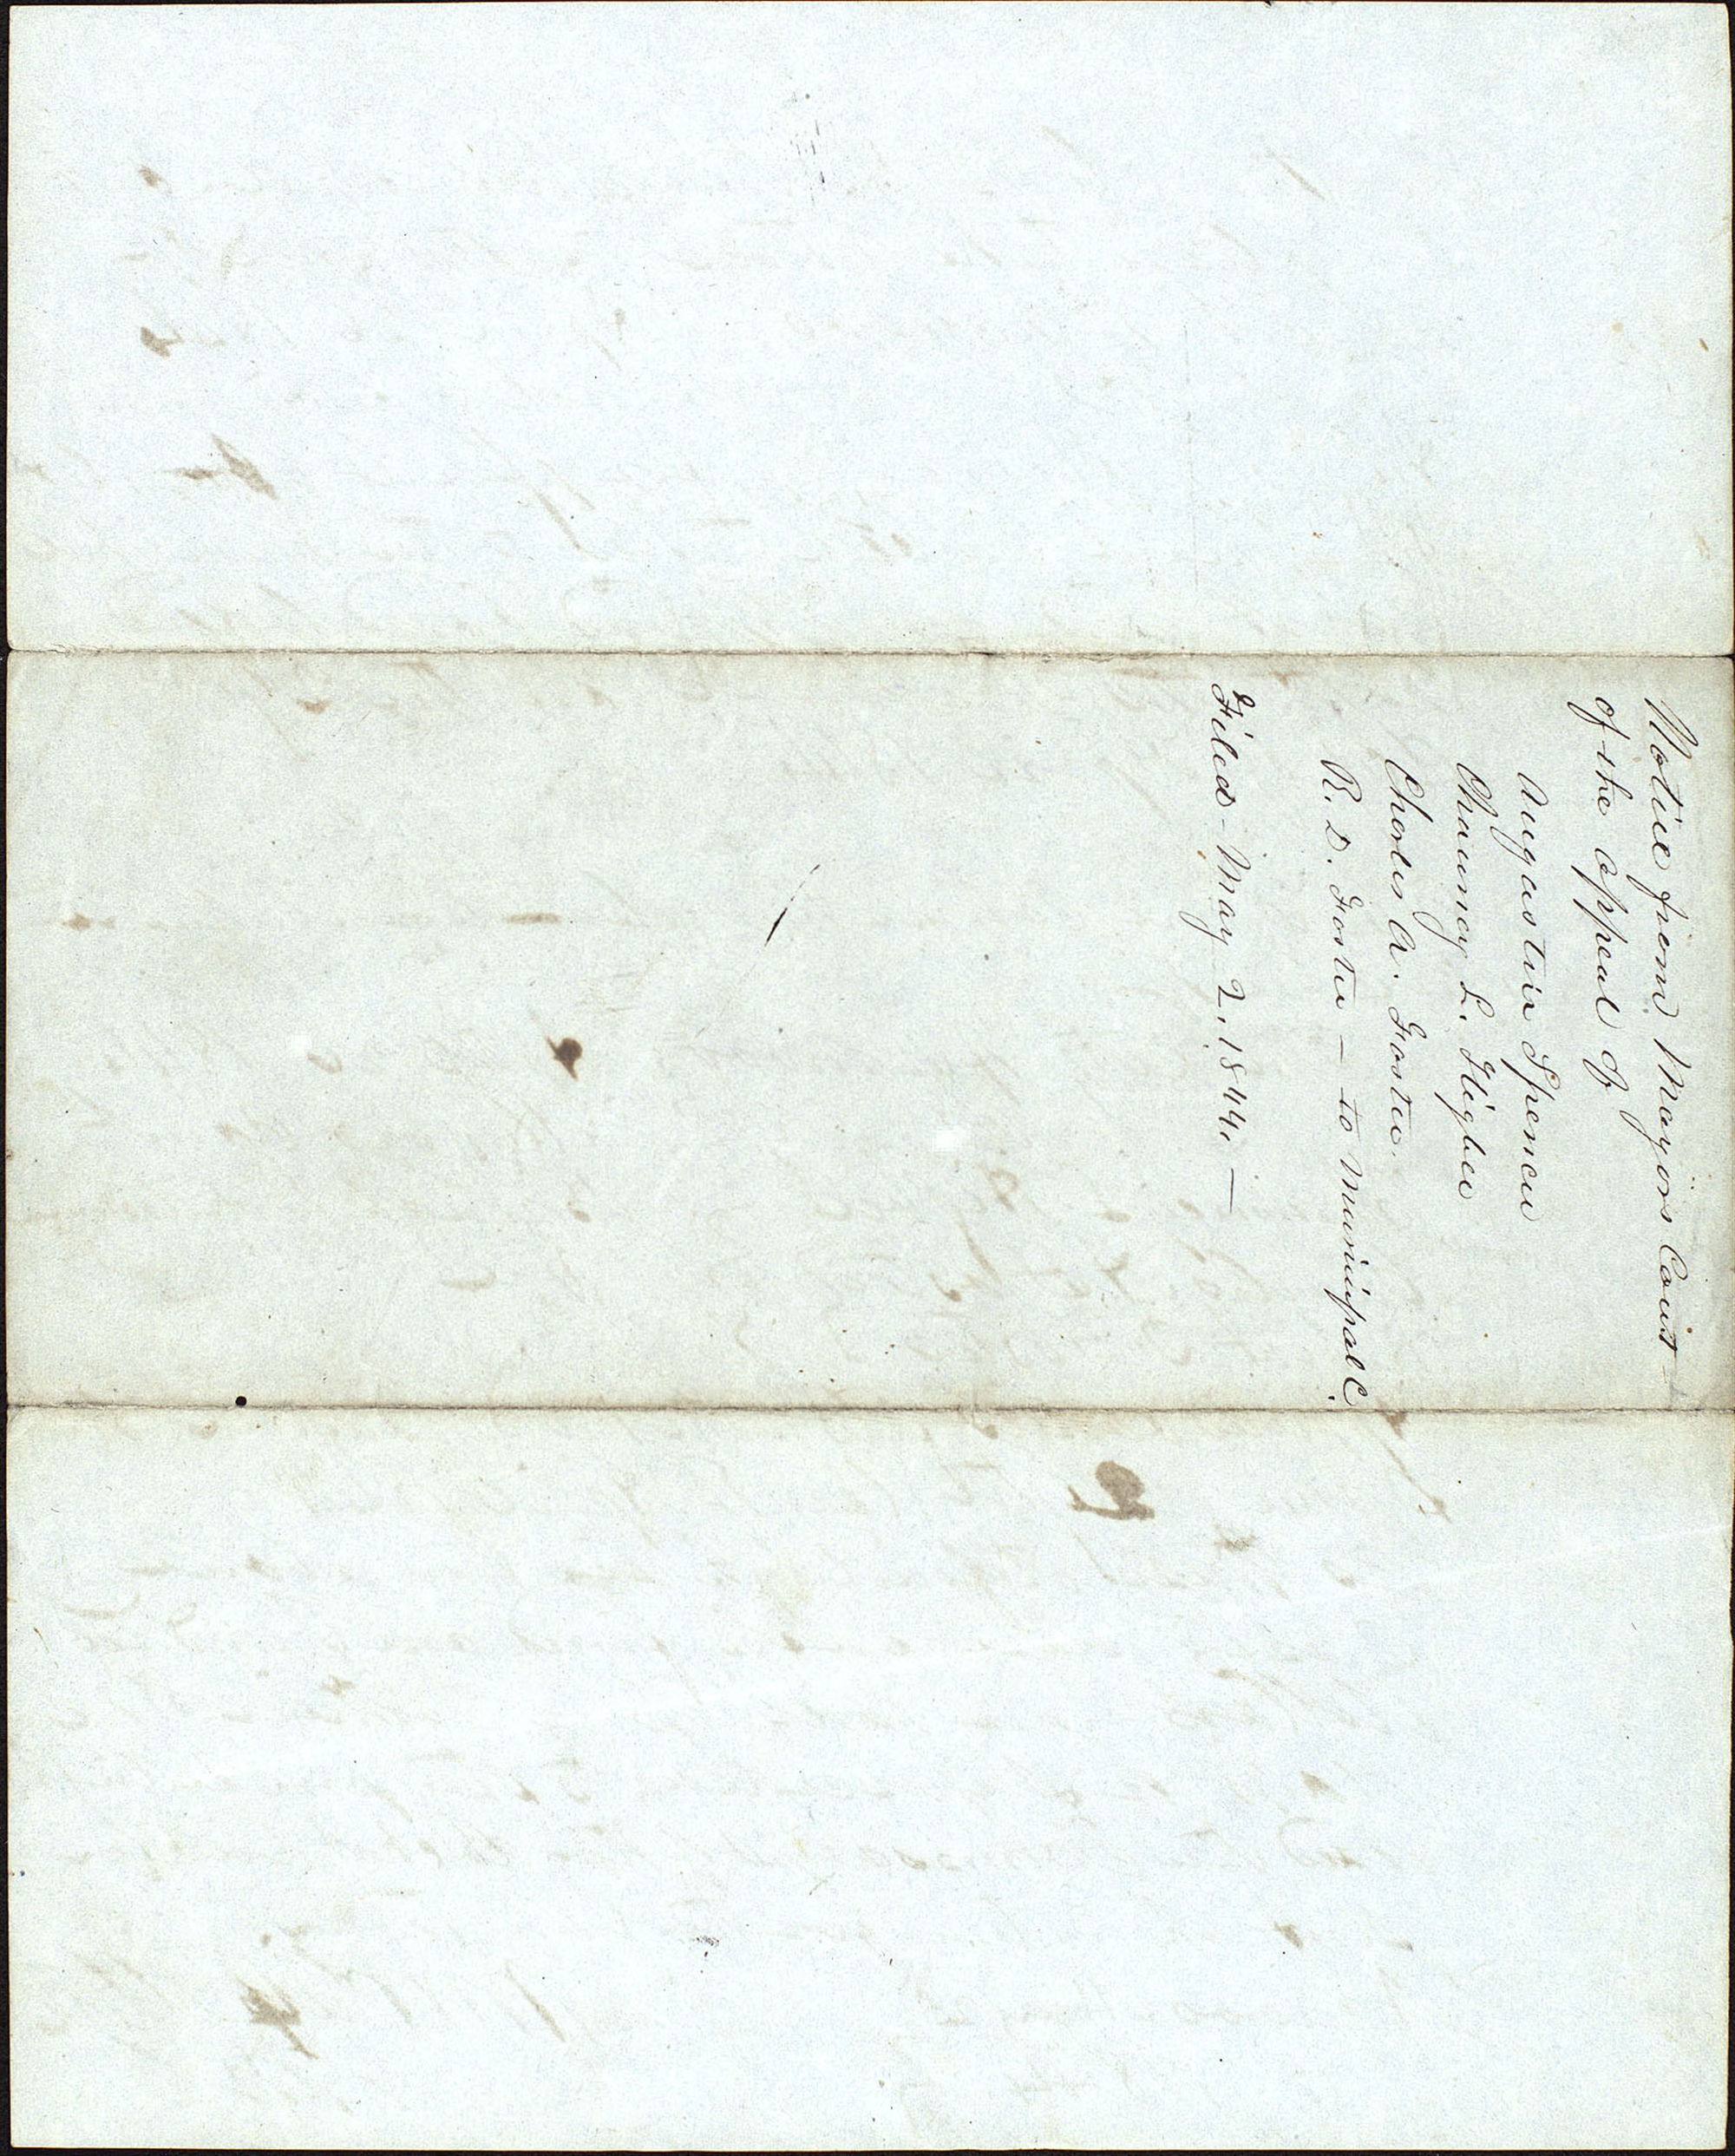 Notice from Mayors Court
of the appeal of
Augustin Spencer
Chauncy L. Higbee
Charles A. Foster.
R. D. Foster — to Municipal C.
Filed May 2, 1844. —